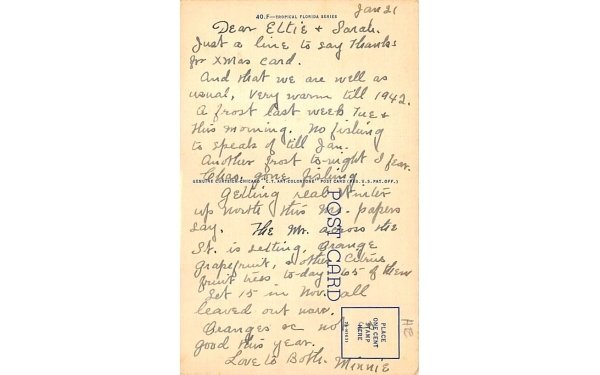 Jan 21
40.F—TROPICAL FLORIDA SERIES
Dear Ettie & Sarah.
Just a line to say Thanks
for Xmas card.
And that we are well as
usual, Very warm till 1942.
A frost last week Tue &
this morning. No fishing
to speak of till Jan.
Another frost to-night I fear.
Chas. gone fishing
GENUINE CURTEICH-CHICAGO "C.T. ART-COLORTONE" POST CARD (REG. U.S. PAT. OFF.)
Getting real Winter
up north this Mo. papers
say. The Mr. across the
St. is setting, Orange
Grapefruit, & other Citrus
fruit trees to-day 65 of them
Set 15 in Nov. all
leaved out now.
Oranges not
good this year.
Love to Both. Minnie
POST CARD
PLACE
ONE CENT
STAMP
HERE